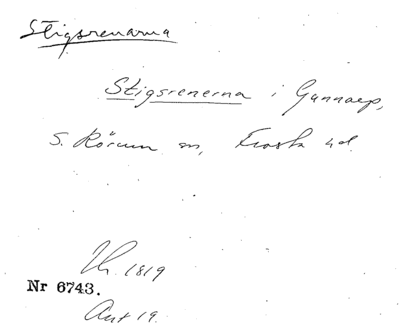 Stigsrenarna
Stigsrenerna i Gunnarp,
S. Rörum sn, Frosta hd.
Lh. 1819
Nr 6743.
Art 19.